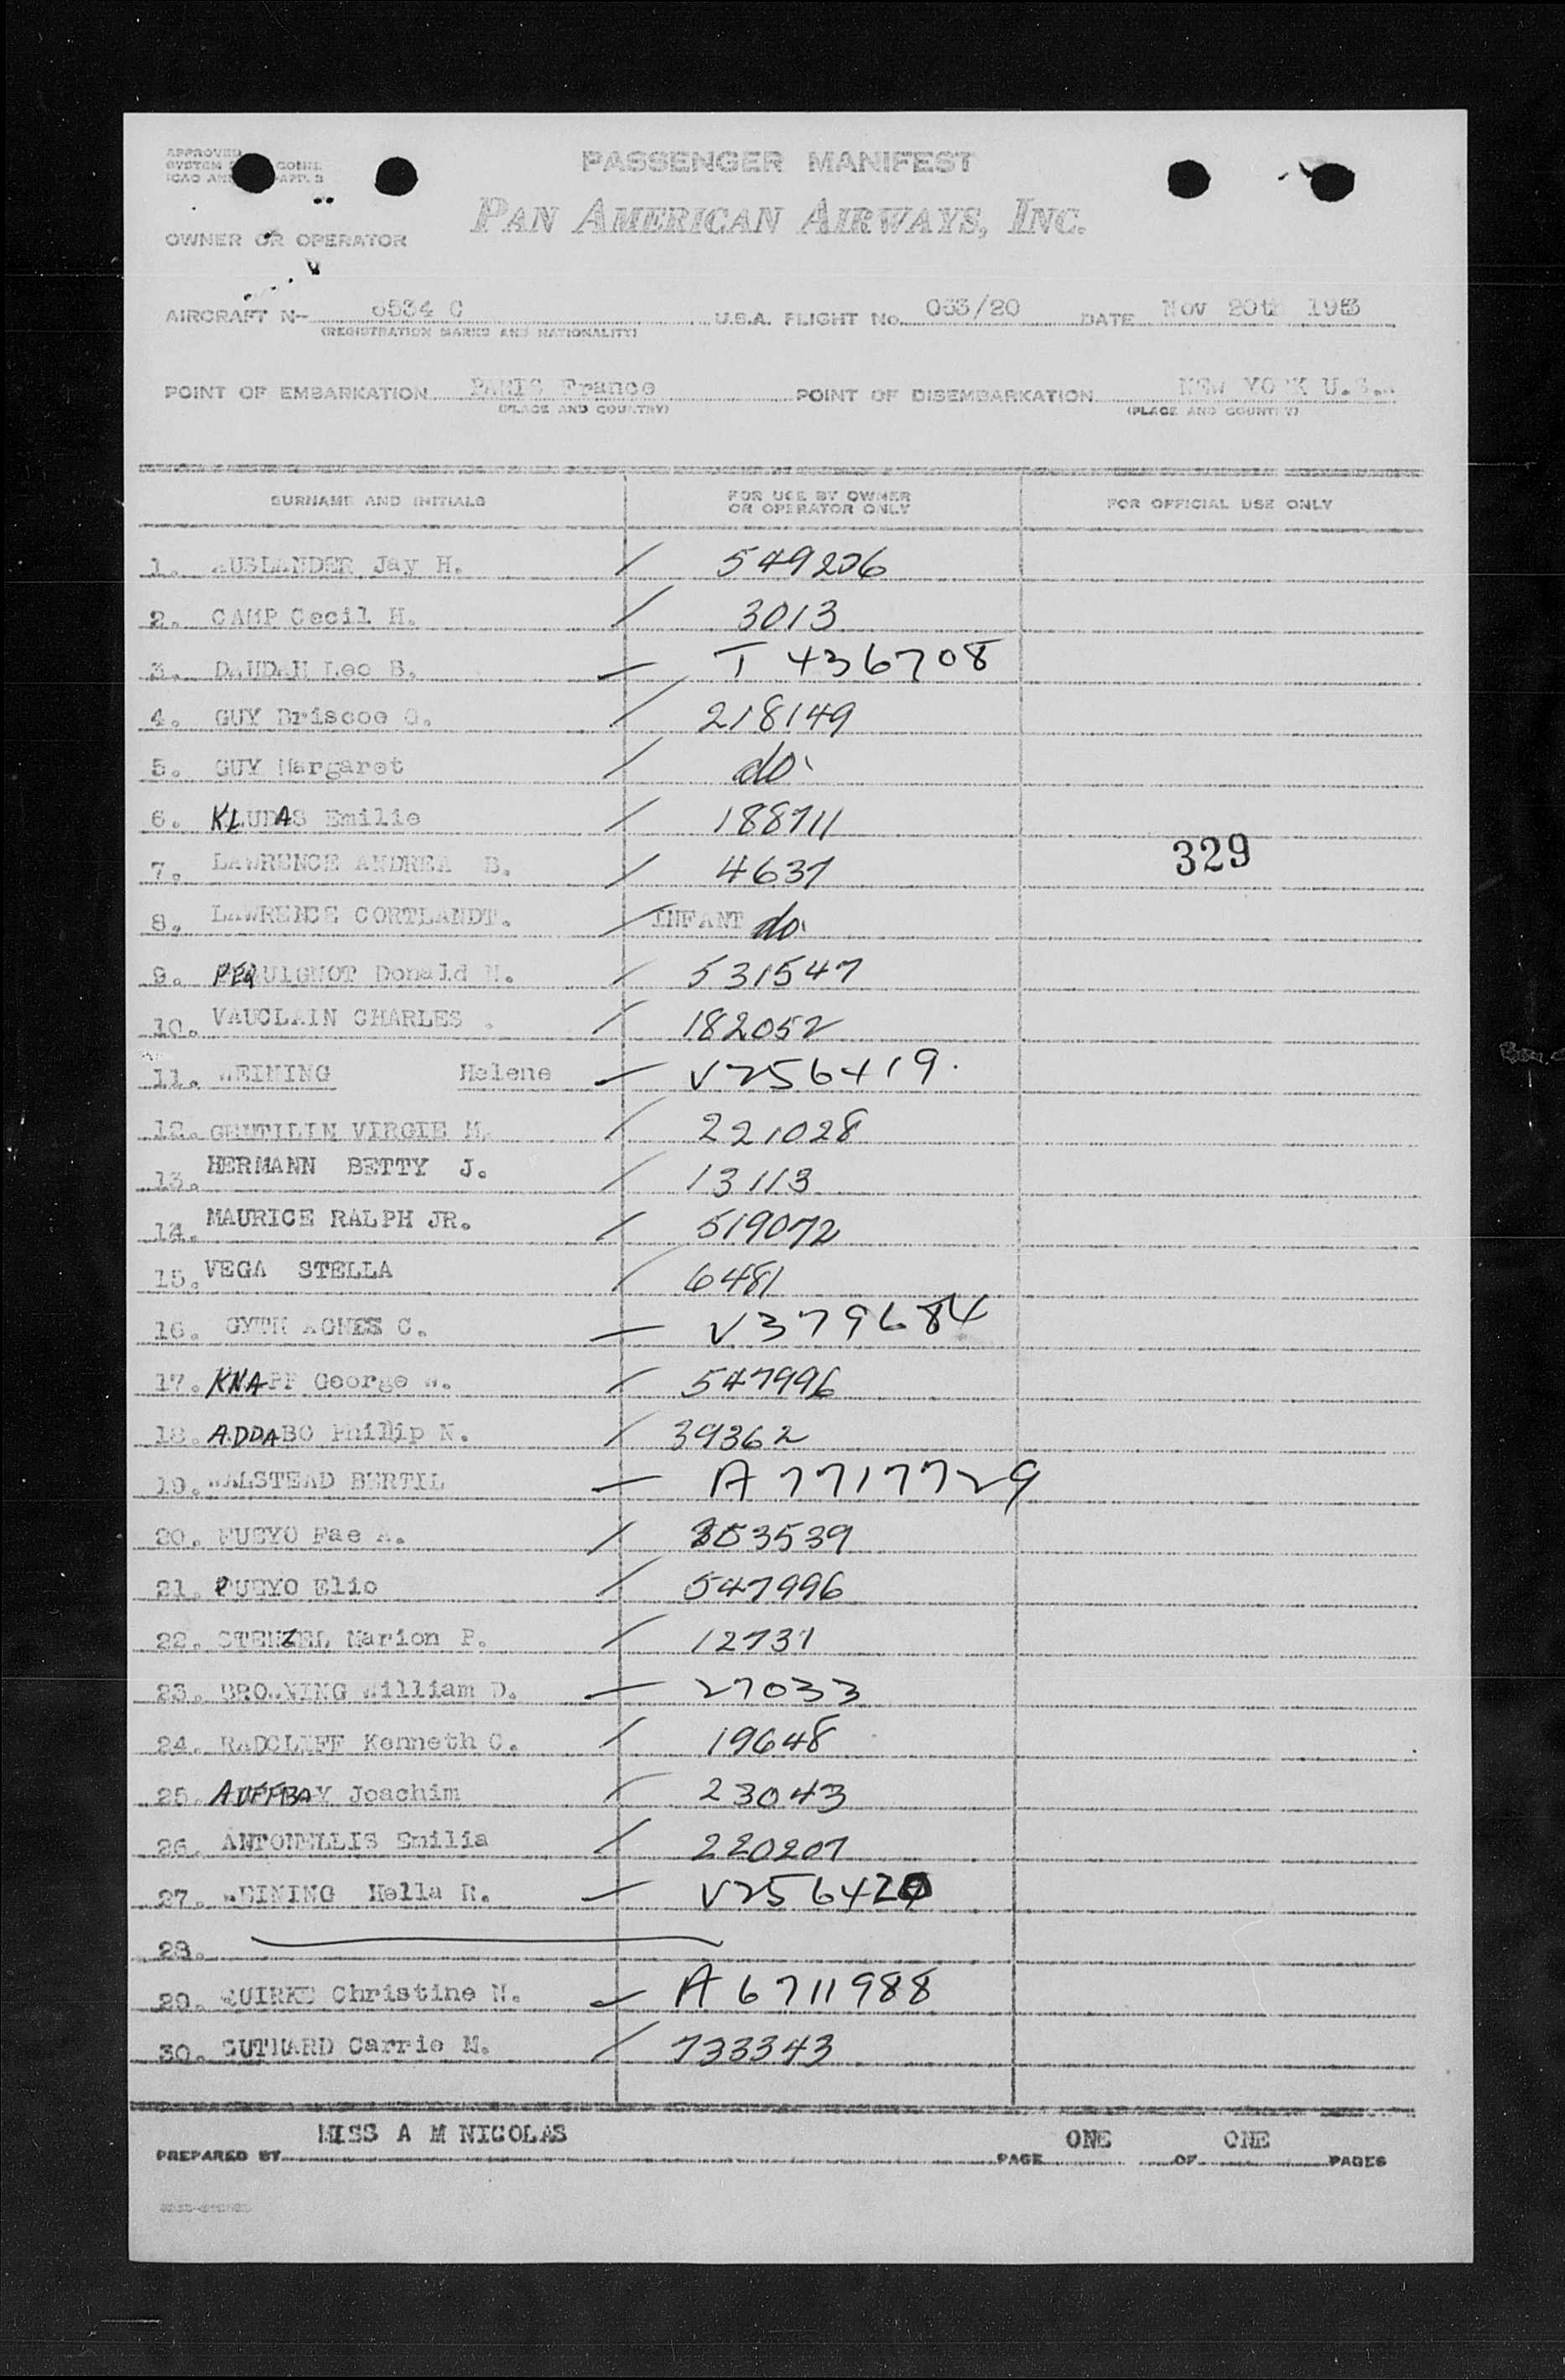 APPROVED
SYSTEM CONN.
ICAO APP. 3
PASSENGER MANIFEST
PAN AMERICAN AIRWAYS, INC.
OWNER OR OPERATOR
AIRCRAFT N- 6534 C U.S.A. FLIGHT No. 063/20 DATE Nov 20th 1953
(REGISTRATION MARKS AND NATIONALITY)
POINT OF EMBARKATION PARIS France POINT OF DISEMBARKATION NEW YORK U.S.A
(PLACE AND COUNTRY) (PLACE AND COUNTRY)
SURNAME AND INITIALS FOR USE BY OWNER OR OPERATOR ONLY FOR OFFICIAL USE ONLY
1. AUSLANDER Jay H. / 549206
2. CAMP Cecil H. / 3013
3. Leo B. — T 436708
4. GUY Briscoe G. / 218149
5. GUY Margaret / do.
6. KLUDAS Emilie / 188711
7. LAWRENCE ANDREA B. / 4637 329
8. LAWRENCE CORTLANDT. / INFANT do.
9. PEQUIGNOT Donald / 531547
10. VAUCLAIN CHARLES . / 182052
11. WEINING Helene — V256419.
12. GENTILIN VIRGIE M. / 221028
13. HERMANN BETTY J. / 13113
14. MAURICE RALPH JR. / 519072
15. VEGA STELLA / 6481
16. GYTH AGNES C. — V379684
17. KNAPP George W. / 547996
18. ADDABO Phillip N. / 39362
19. WALSTEAD BERTIL — A 7717729
20. PUEYO Fae A. / 303539
21. PUEYO Elio / 547996
22. STENZEL Marion P. / 12737
23. BROWNING William D. — 27033
24. RADCLIFF Kenneth C. / 19648
25. AUFFBAY Joachim / 23043
26. ANTONELLIS Emilia / 220207
27. WEINING Hella R. — V256420
28.
29. QUIRKE Christine N. — A 6711988
30. Carrie M. / 733343
PREPARED BY MISS A M NICOLAS PAGE ONE OF ONE PAGES